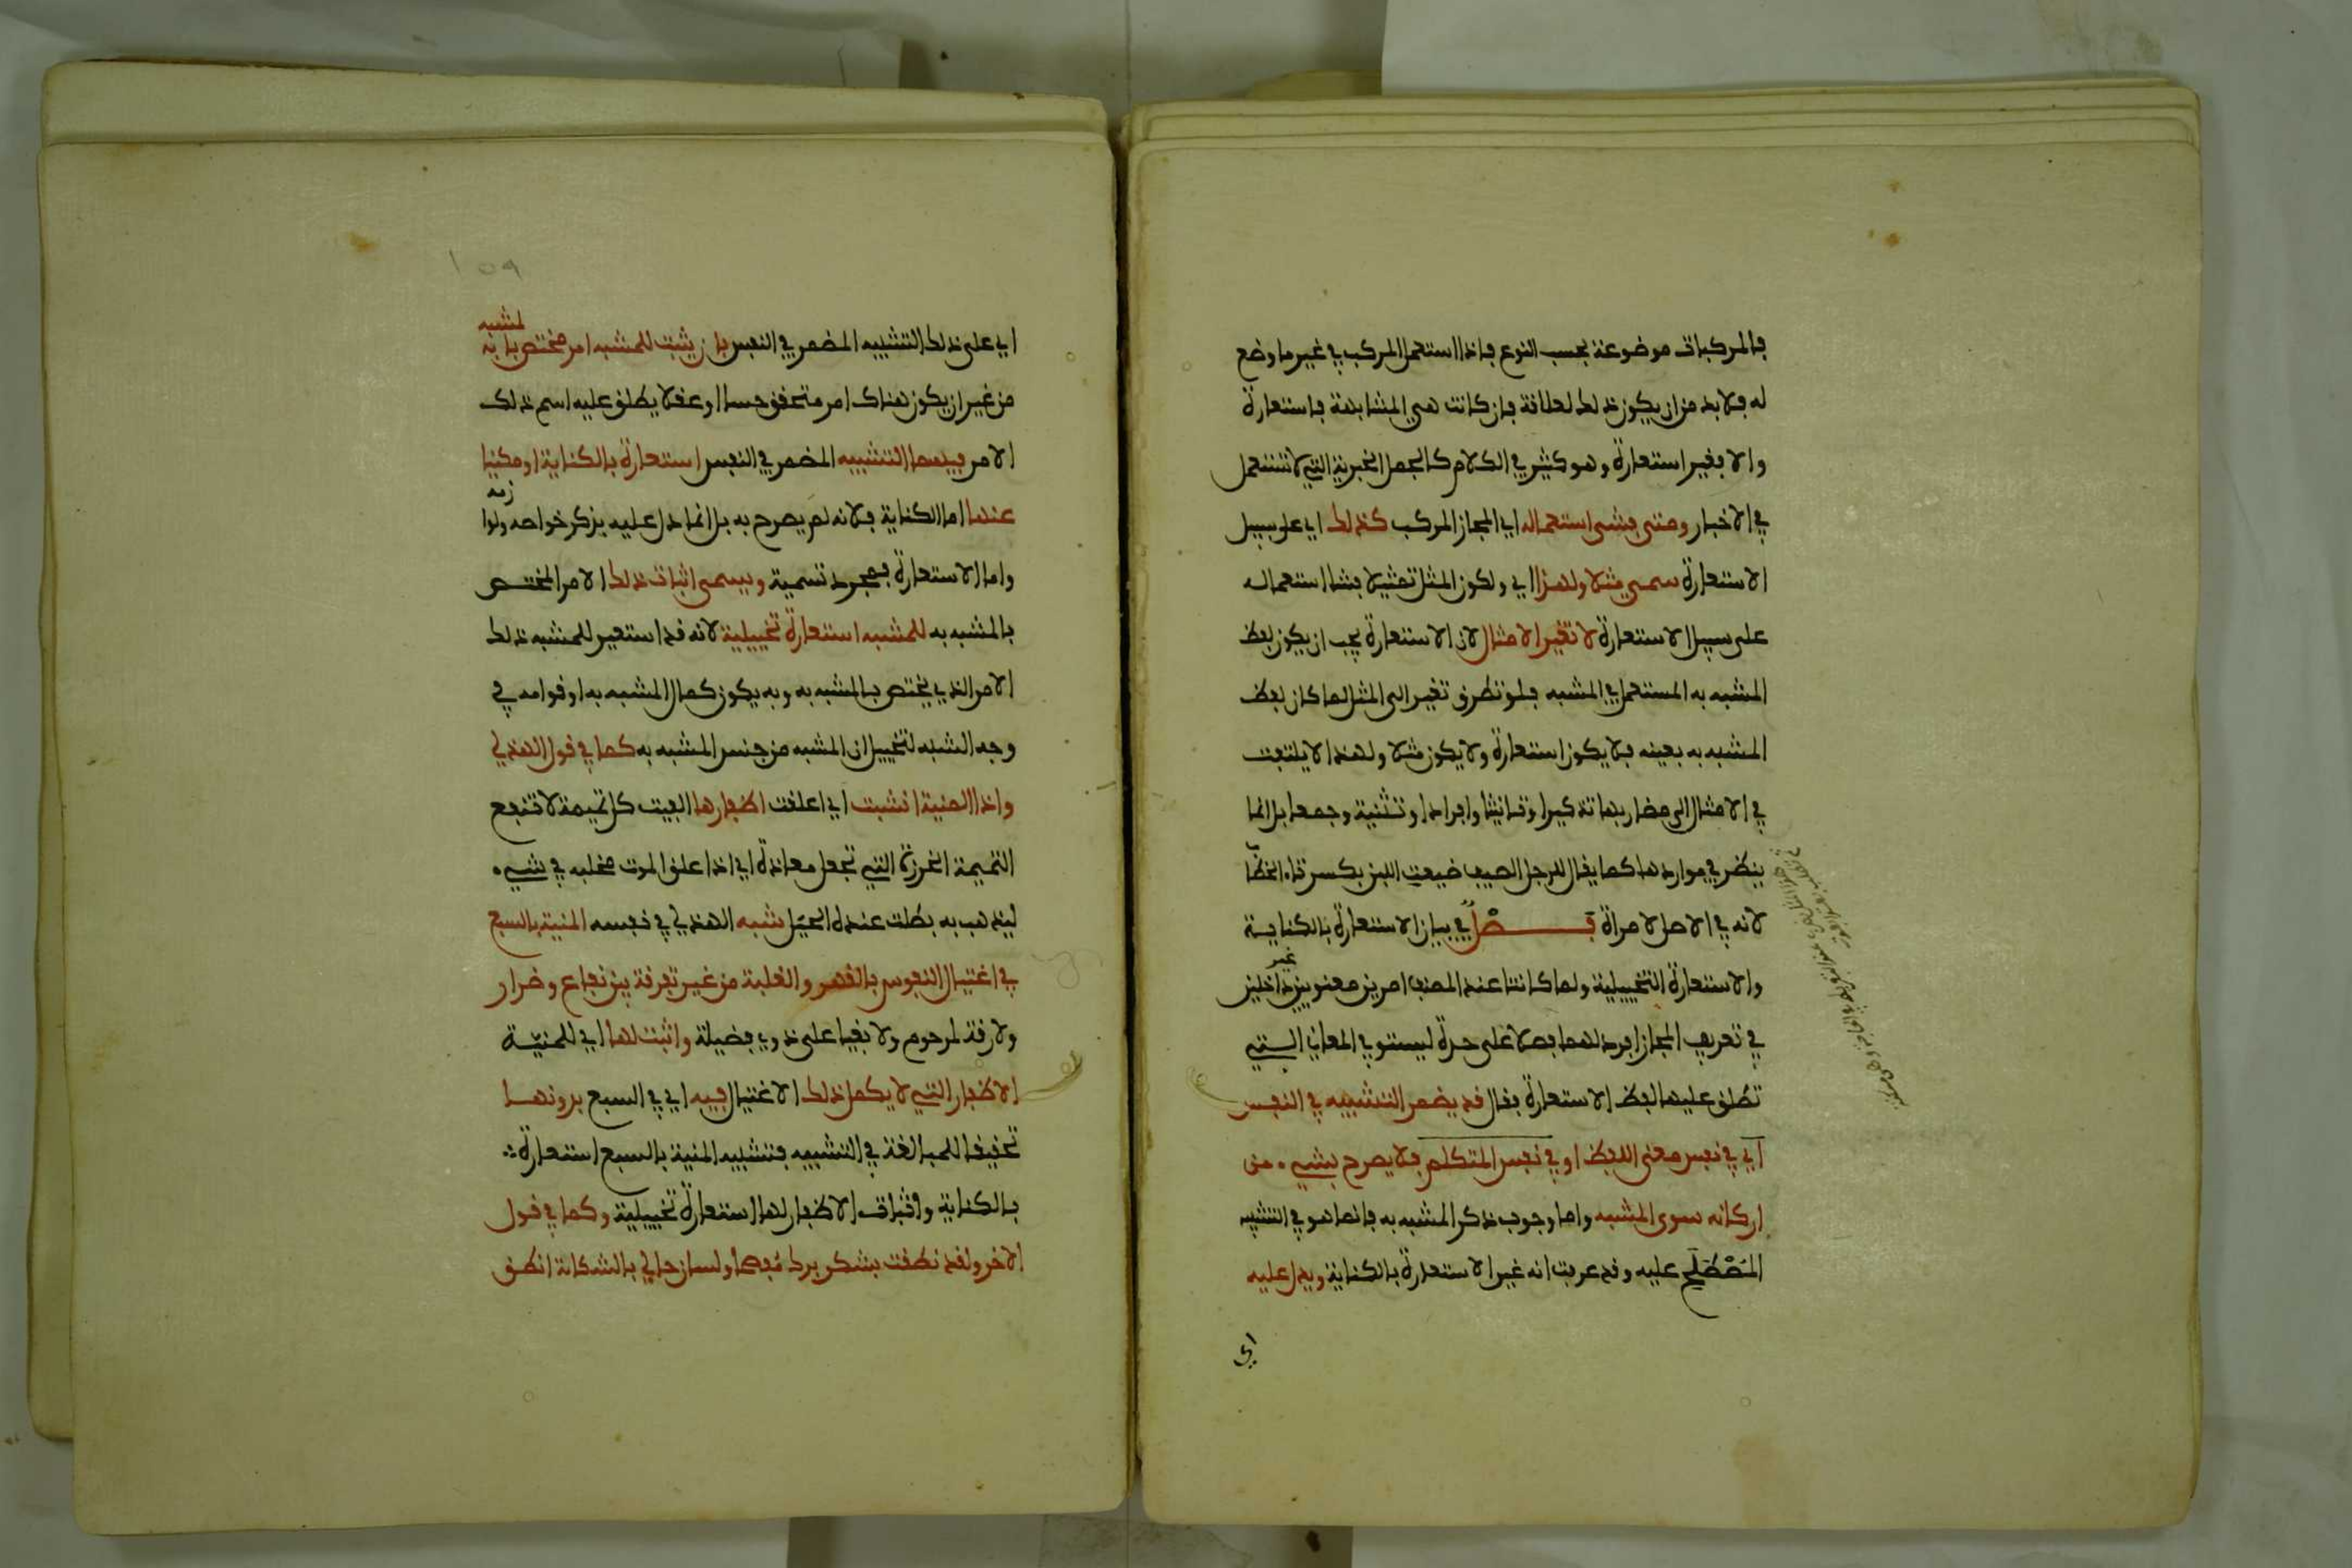 فالمركبات موضوعة بحسب النوع فاذا استعمل المركب في غير ما وضع
له فلا بد من ان يكون ذلك لعلاقة فان كانت هي المشابهة فاستعارة
والا فغير استعارة وهو كثير في الكلام كالجمل الخبرية التي لا تستعمل
في الاخبار ومتى فشى استعماله اي المجاز المركب كذلك اي على سبيل
الاستعارة سمى مثلا ولهذا اي ولكون المثل تمثيلا فشا استعماله
على سبيل الاستعارة لا تغير الامثال لان الاستعارة يجب ان يكون لفظ
المشبه به المستعمل في المشبه فلو تطرق تغير الى المثل لما كان لفظ
المشبه به بعينه فلا يكون استعارة ولا يكون مثلا ولهذا لا يلتفت
في الامثال الى مضاربها تذكيرا وتانيثا وافرادا وتثنية وجمعا بل انما
ينظر في مواردها كما يقال للرجل الصيف ضيعت اللبن بكسر تاء الخطاب
لانه في الاصل لامراة فصل في بيان الاستعارة بالكناية
والاستعارة التخييلية ولما كانتا عند المصنف امرين معنويين غير داخلين
في تعريف المجاز افرد لهما فصلا على حدة ليستوي المعاني التي
تطلق عليها لفظ الاستعارة فقال قد يضمر التشبيه في النفس
اي في نفس معنى اللفظ او في نفس المتكلم فلا يصرح بشيء من
اركانه سوى المشبه واما وجوب ذكر المشبه به فانما هو في التشبيه
المصْطَلَح عليه وقد عرفت انه غير الاستعارة بالكناية ويدل عليه
اي
١٥٩
اي على ذلك التشبيه المضمر في النفس بان يثبت للمشبه امر مختص بالمشبه به
من غير ان يكون هناك امر متحقق حسا او عقلا يطلق عليه اسم ذلك
الامر فيسمى التشبيه المضمر في النفس استعارة بالكناية او مكنيا
عنها اما الكناية فلانه لم يصرح به بل انما دل عليه بذكر خواصه ولوازمه
واما الاستعارة فمجرد تسمية ويسمى اثبات ذلك الامر المختص
بالمشبه به للمشبه استعارة تخييلية لانه قد استعير للمشبه ذلك
الامر الذي يختص بالمشبه به وبه يكون كمال المشبه به او قوامه في
وجه الشبه لتخييل ان المشبه من جنس المشبه به كما في قول الهذلي
واذا المنية انشبت اي اعلقت اظفارها الفيت كل تميمة لا تنفع
التميمة الخرزة التي تجعل معاذة اي اذا علق الموت مخلبه في شيء
ليذهب به بطلت عنده الحيل شبه الهذلي في نفسه المنية بالسبع
في اغتيال النفوس بالقهر والغلبة من غير تفرقة بين نفاع وضرار
ولا رقة لمرحوم ولا بقيا على ذوي فضيلة واثبت لها اي للمنية
الاظفار التي لا يكمل ذلك الاغتيال فيه اي في السبع بدونها
تحقيقا للمبالغة في التشبيه فتشبيه المنية بالسبع استعارة
بالكناية واثبات الاظفار لها استعارة تخييلية وكما في قول
الاخر ولقد نطقت بشكر برك مفصحا ولسان حالي بالشكاية انطق